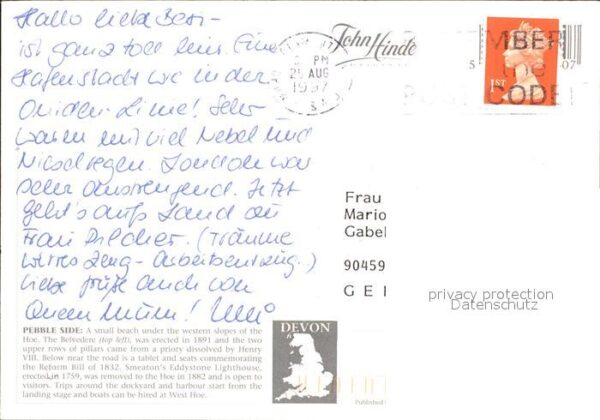 Hallo liebe Besi-
ist ganz toll hier. Eine
Hafenstadt wie in der
Onedin-Linie! Sehr
waren mit viel Nebel und
Nieselregen. London war
sehr anstrengend. Jetzt
geht's aufs Land zu
Frau Pilcher. (Träume
wirres Zeug - Arbeitsentzug.)
Liebe Grüße auch von
Queen Mum!
John Hinde
PM
25 AUG
1997
MBER
the
POSTCODE
1ST
5
07
Frau
Mario
Gabel
90459
GE
privacy protection
Datenschutz
PEBBLE SIDE: A small beach under the western slopes of the
Hoe. The Belvedere (top left), was erected in 1891 and the two
upper rows of pillars came from a priory dissolved by Henry
VIII. Below near the road is a tablet and seats commemorating
the Reform Bill of 1832. Smeaton's Eddystone Lighthouse,
erected in 1759, was removed to the Hoe in 1882 and is open to
visitors. Trips around the dockyard and harbour start from the
landing stage and boats can be hired at West Hoe.
DEVON
Published